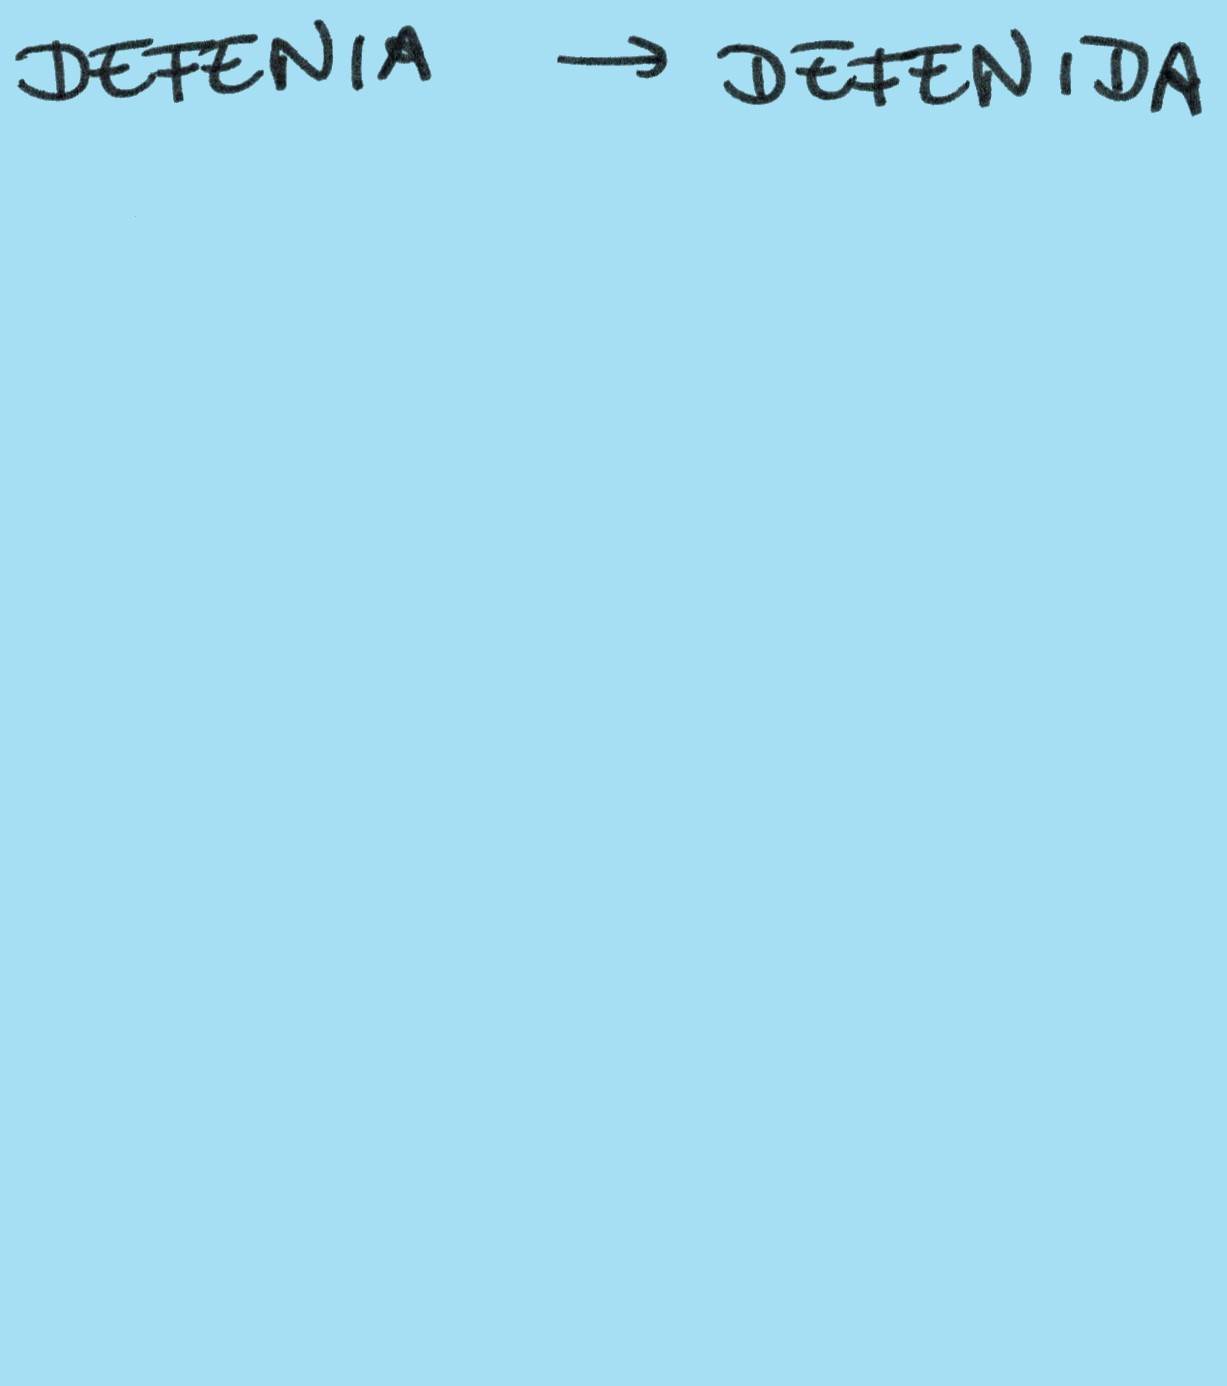 DEFENIA → DEFENIDA